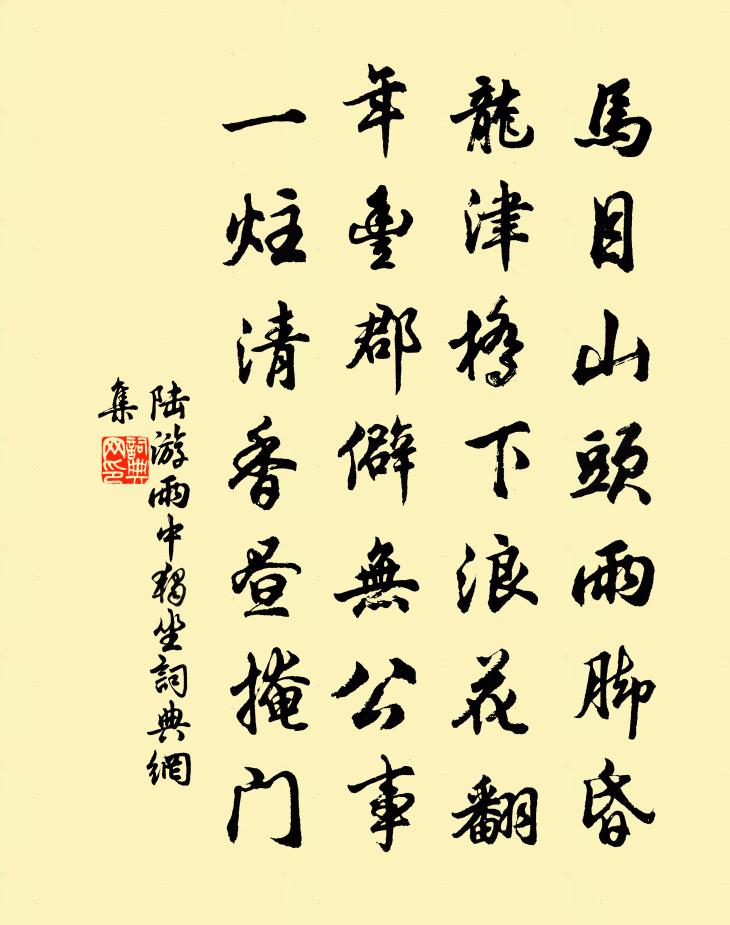 馬目山頭雨脚昏
龍津橋下浪花翻
年豊郡僻無公事
一炷清香昼掩门
陆游雨中獨坐詞典網
集
詞典
网印